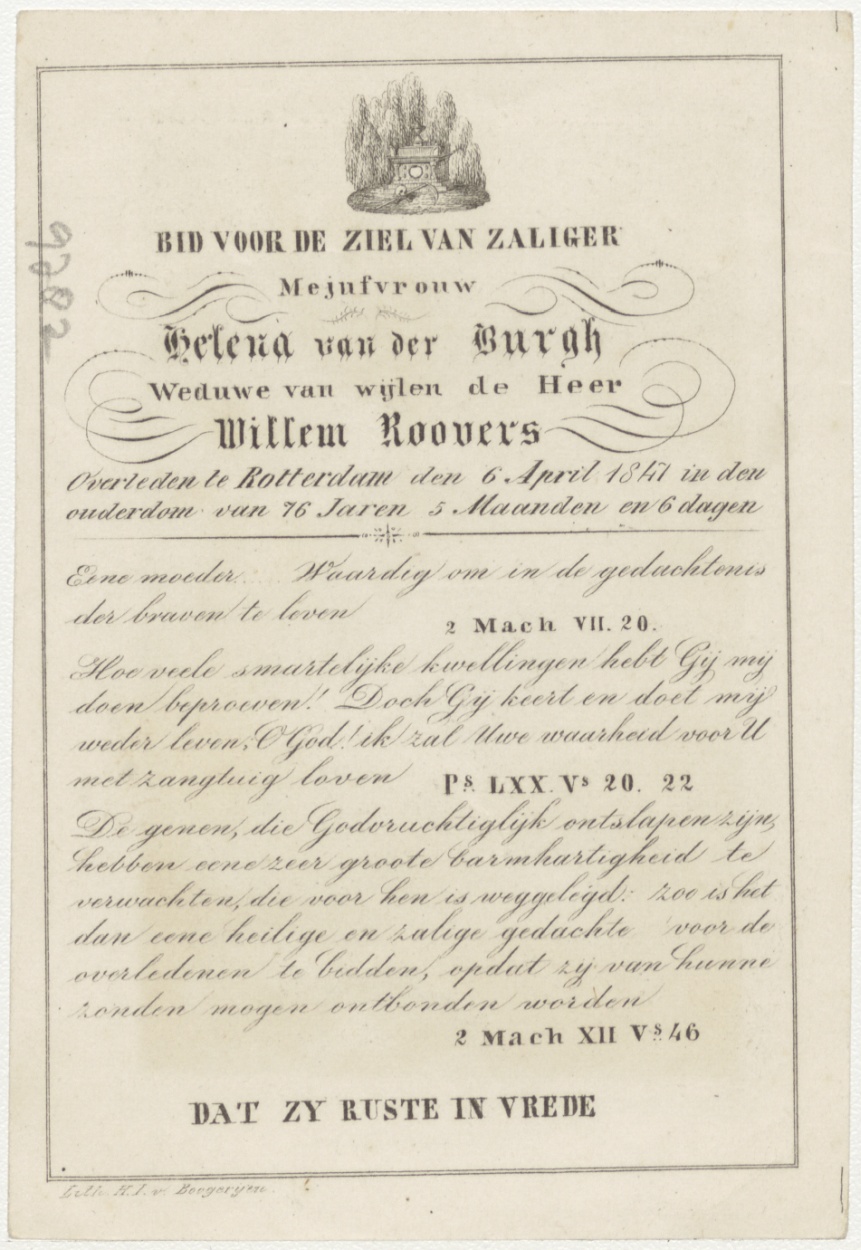 BID VOOR DE ZIEL VAN ZALIGER
Mejufvrouw
Helena van der Burgh
Weduwe van wijlen de Heer
Willem Roovers
Overleden te Rotterdam den 6 April 1847 in den
ouderdom van 76 Jaren 5 Maanden en 6 dagen
Eene moeder... Waardig om in de gedachtenis
der braven te leven
2 Mach VII. 20.
Hoe veele smartelijke kwellingen hebt Gij mij
doen beproeven! Doch Gij keert en doet mij
weder leven; O God! ik zal Uwe waarheid voor U
met zangtuig loven
Ps. LXX. Vs 20. 22
De genen, die Godvruchtiglijk ontslapen zijn,
hebben eene zeer groote barmhartigheid te
verwachten, die voor hen is weggelegd: zoo is het
dan eene heilige en zalige gedachte voor de
overledenen te bidden, opdat zy van hunne
zonden mogen ontbonden worden
2 Mach XII Vs 46
DAT ZY RUSTE IN VREDE
Lith. H.I. v.